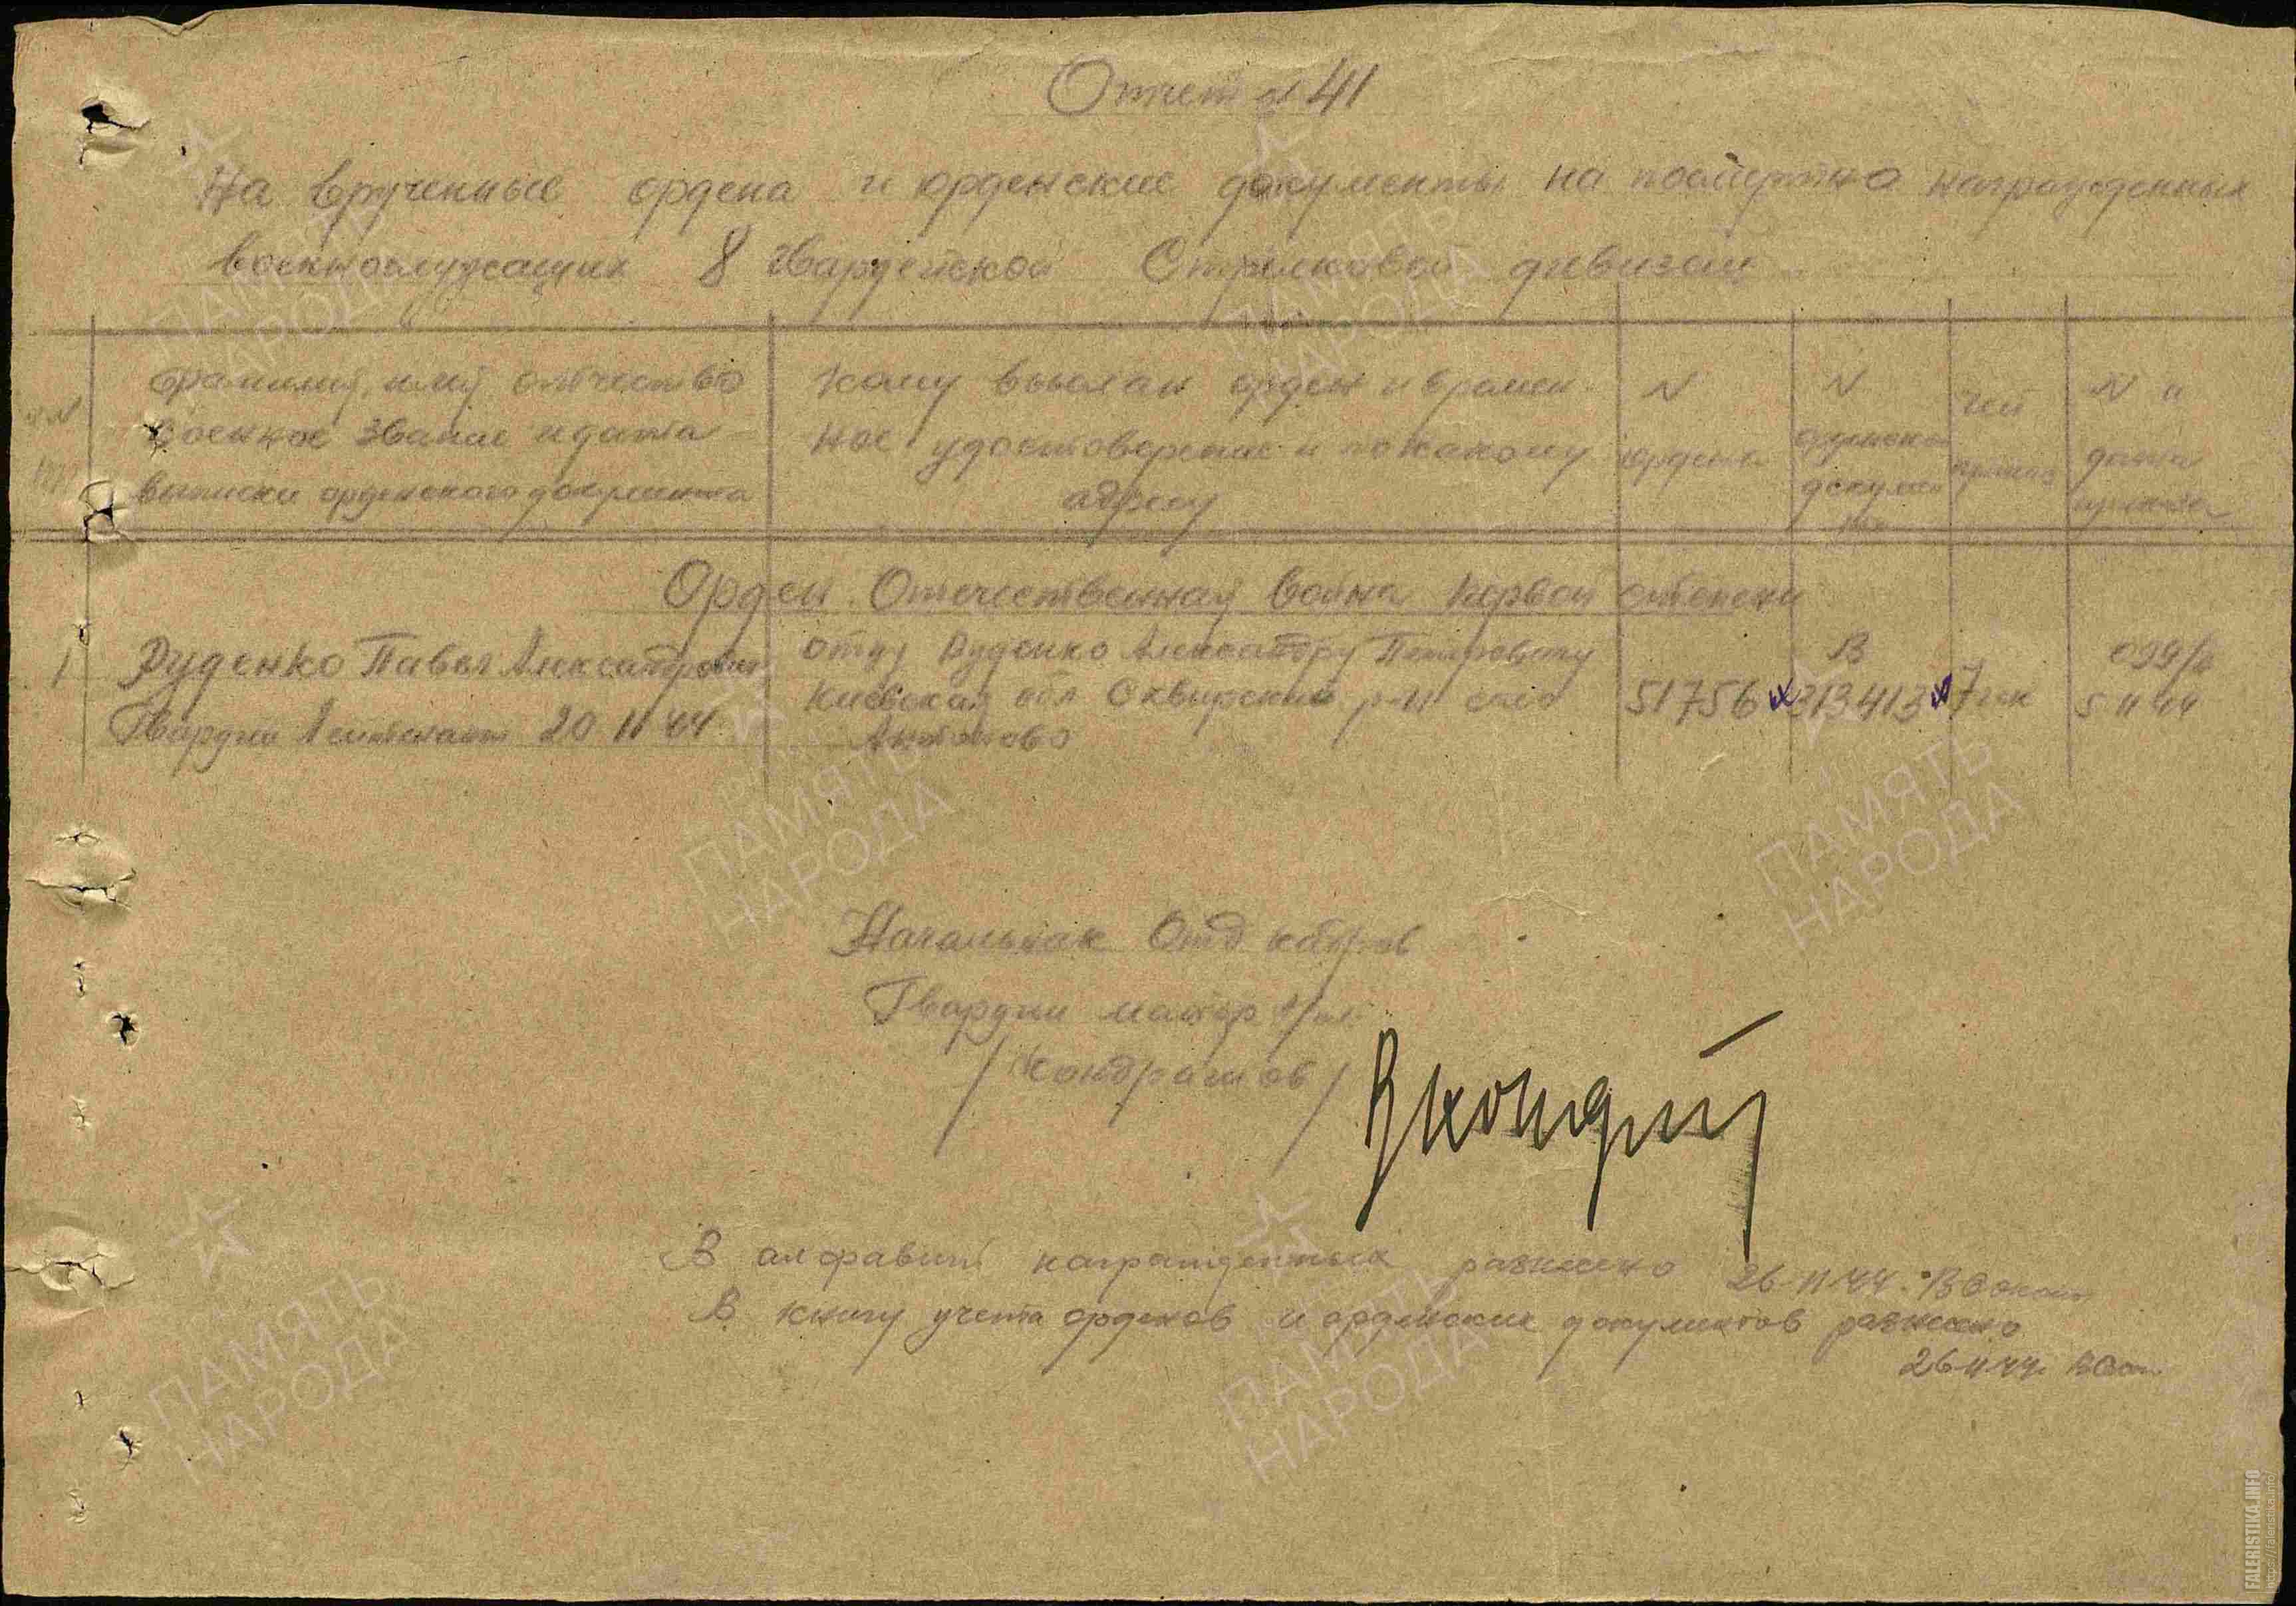 Отчет № 41
На врученные ордена и орденские документы на посмертно награжденных
военнослужащих 8 Гвардейской Стрелковой дивизии
NN
пп
Фамилия, имя, отчество
Военное звание и дата
выписки орденского документа
Кому выслан орден и времен
ное удостоверение и по какому
адресу
N
ордена
N
орденско
докумен
та
Чей
приказ
N и
дата
приказа
Орден Отечественная Война Первой степени
1
Руденко Павел Александрович
Гвардии Лейтенант 20 11 44
отцу Руденко Александру Петровичу
Киевская обл Сквирский р-н село
Антоново
51756
В
313413
7 гск
099/н
5 11 44
Начальник Отд кадров
Гвардии майор
/Кондрашов/
В алфавит награжденных разнесено 26-11-44.
В книгу учета орденов и орденских документов разнесено
26-11-44
ПАМЯТЬ
НАРОДА
ПАМЯТЬ
НАРОДА
ПАМЯТЬ
НАРОДА
ПАМЯТЬ
НАРОДА
ПАМЯТЬ
НАРОДА
ПАМЯТЬ
НАРОДА
FALERISTIKA.INFO
http://faleristika.info